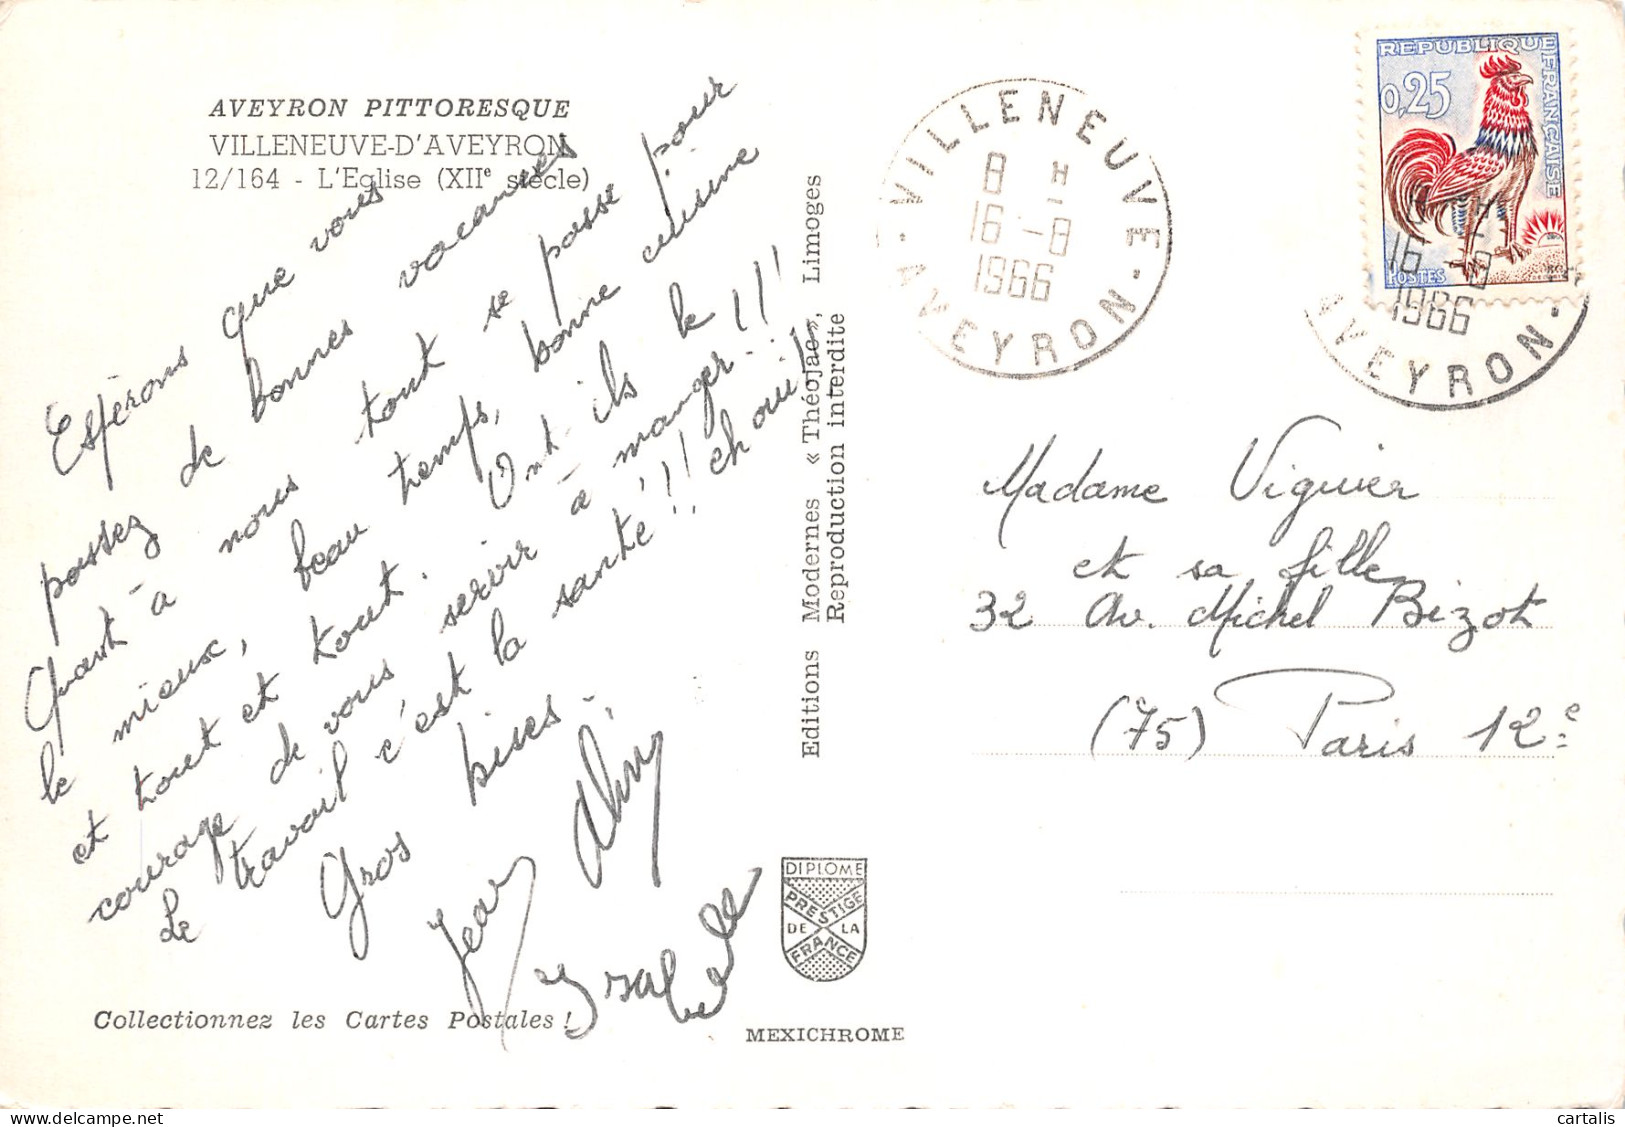 AVEYRON PITTORESQUE
VILLENEUVE-D'AVEYRON
12/164 - L'Eglise (XIIe siècle)
Espérons que vous
passez de bonnes vacances
Quant à nous tout se passe pour
le mieux, beau temps, bonne cuisine
et tout et tout. Ont ils le
courage de vous servir à manger..!!!
Le travail c'est la santé!!! chouil
Gros bises.
Jean
Ysabelle
Collectionnez les Cartes Postales !
Editions Modernes « Théojac », Limoges
Reproduction interdite
DIPLOME
PRESTIGE
DE LA
FRANCE
MEXICHROME
VILLENEUVE
8 H
16 -8
1966
AVEYRON
REPUBLIQUE FRANÇAISE
0,25
POSTES
16 -8
1966
AVEYRON
Madame Viguier
et sa fille
32 Av. Michel Bizot
(75) Paris 12e
cartalis